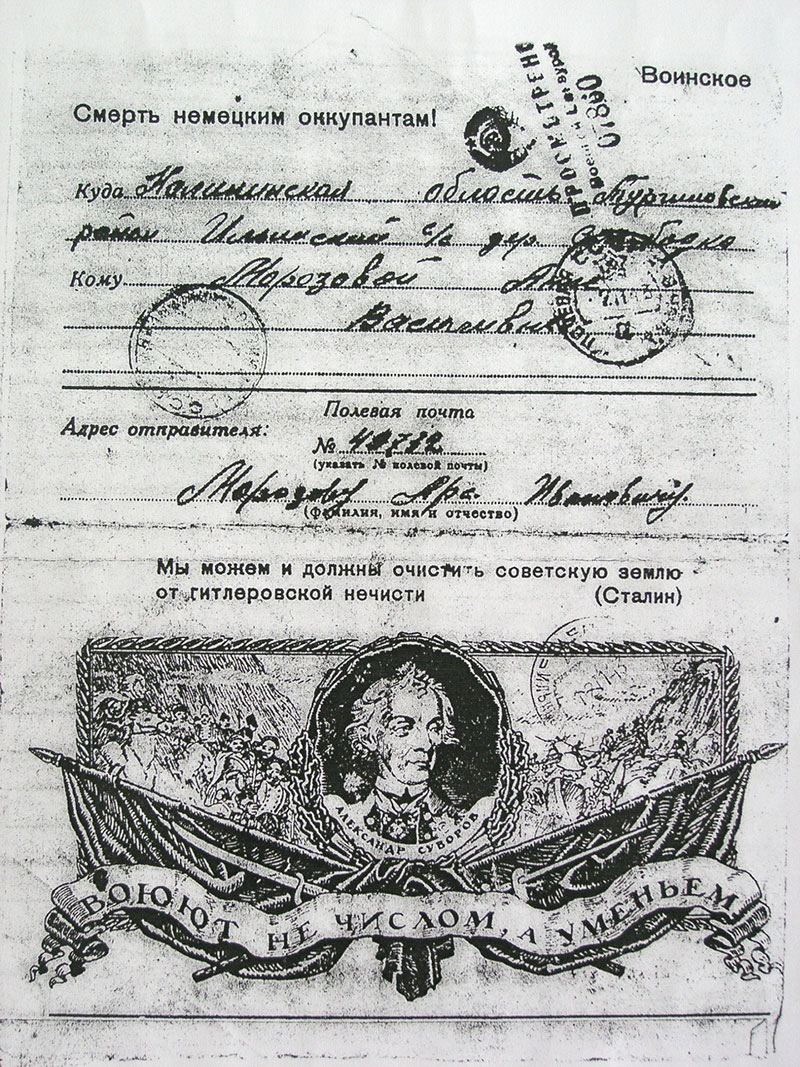 Воинское
Смерть немецким оккупантам!
ПРОСМОТРЕНО
Военной Цензурой
07860
Куда Калининская область Тургиновский
район Ильинский с/с дер.
Кому Морозовой Анне
Васильевне
Полевая почта
Адрес отправителя:
№ 40732
(указать № полевой почты)
Морозову Ивановичу
(фамилия, имя и отчество)
Мы можем и должны очистить советскую землю
от гитлеровской нечисти (Сталин)
АЛЕКСАНДР СУВОРОВ
ВОЮЮТ НЕ ЧИСЛОМ, А УМЕНЬЕМ